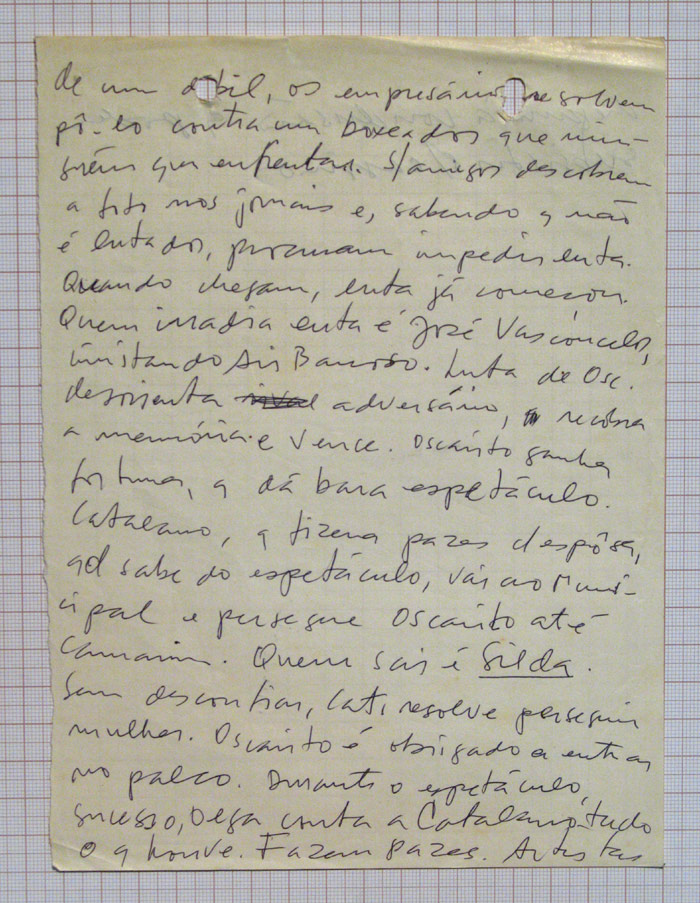 de um débil, os empresários resolvem
pô-lo contra um boxeador que nin-
guém quer enfrentar. S/amigos descobrem
a foto nos jornais e, sabendo q não
é lutador, procuram impedir luta.
Quando chegam, luta já começou.
Quem irradia luta é José Vasconcelos,
imitando Ari Barroso. Luta de Osc.
desorienta adversário, recobra
a memória e vence. Oscarito ganha
fortuna, q dá para espetáculo.
Catalano, q fizera pazes c/espôsa,
qd sabe do espetáculo, vai ao Muni-
cipal e persegue Oscarito até
camarim. Quem sai é Gilda.
Sem desconfiar, Cat. resolve perseguir
mulher. Oscarito é obrigado a entrar
no palco. Durante o espetáculo,
sucesso, conta a Catalano tudo
o q houve. Fazem pazes. Artistas